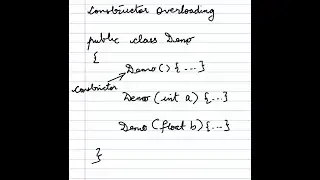 Constructor Overloading
public class Demo
{
Demo() {...}
Constructor
Demo (int a) {...}
Demo (float b) {...}
}